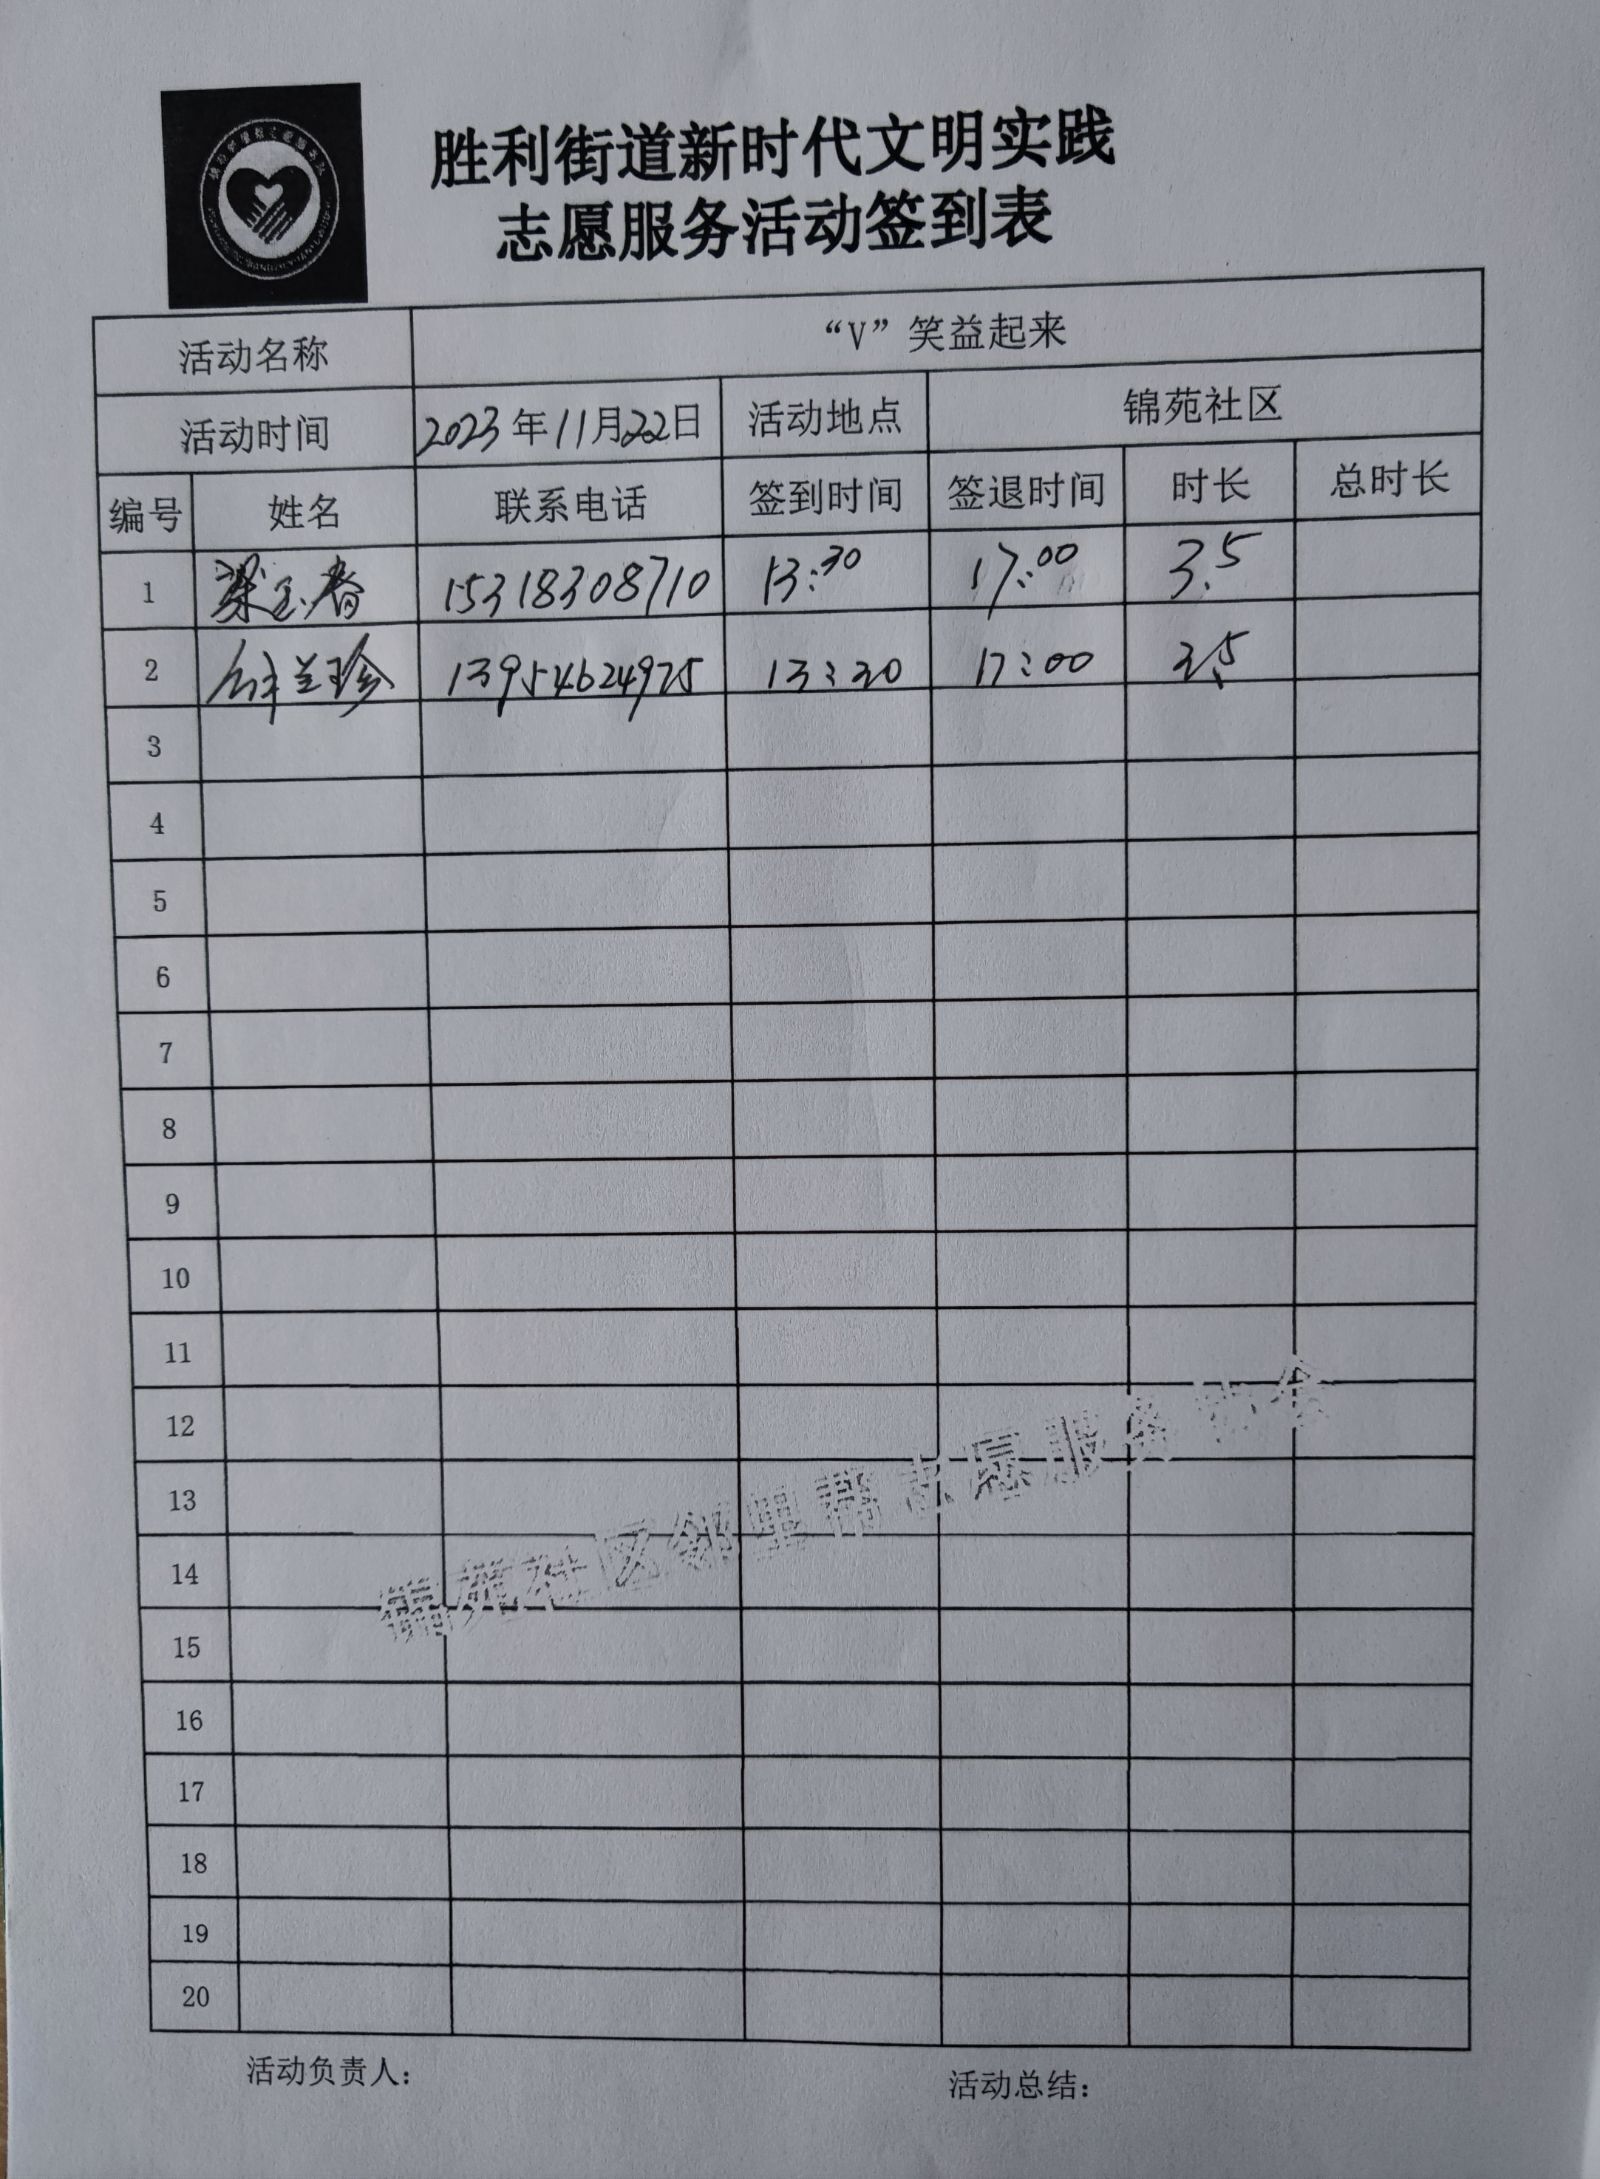 胜利街道新时代文明实践
志愿服务活动签到表
活动名称 “V”笑益起来
活动时间 2023年11月22日 活动地点 锦苑社区
编号 姓名 联系电话 签到时间 签退时间 时长 总时长
1 梁玉春 15318308710 13:30 17:00 3.5
2 兰珍 13954624975 13:30 17:00 3.5
3
4
5
6
7
8
9
10
11
12
13
14
15
16
17
18
19
20
锦苑社区邻里帮志愿服务协会
活动负责人: 活动总结: